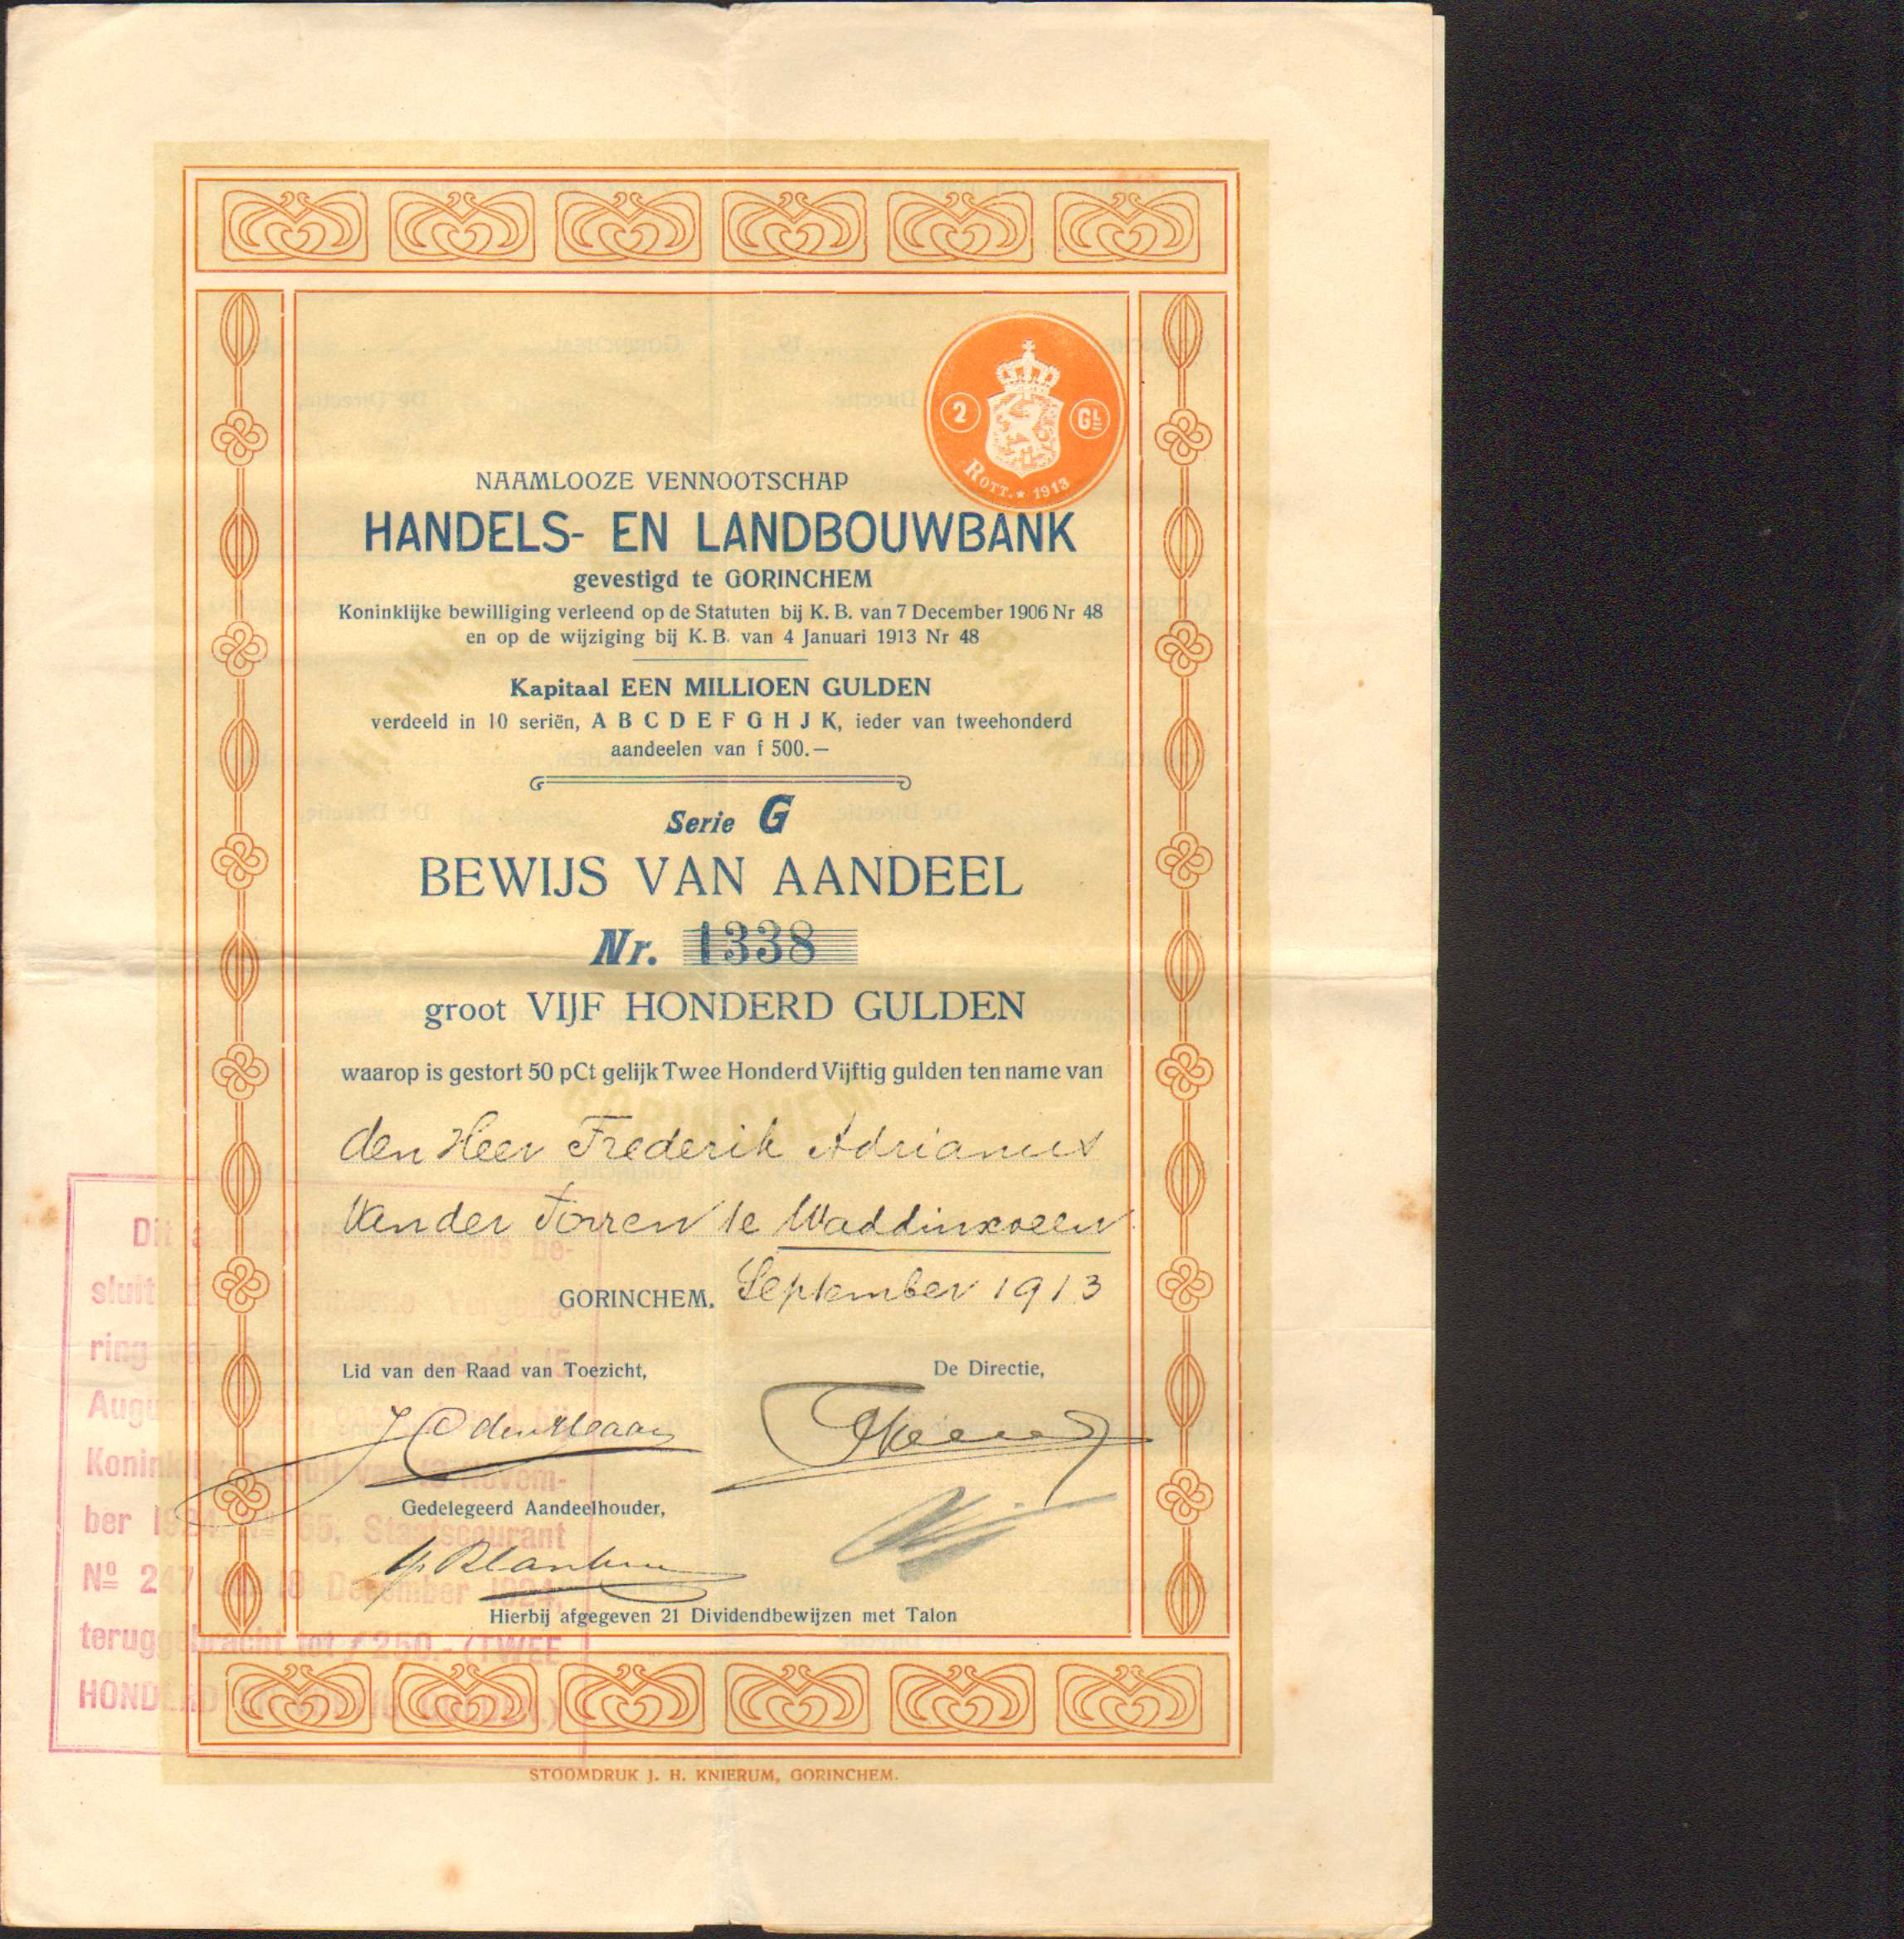 2 GL
ROTT. * 1913
NAAMLOOZE VENNOOTSCHAP
HANDELS- EN LANDBOUWBANK
gevestigd te GORINCHEM
Koninklijke bewilliging verleend op de Statuten bij K. B. van 7 December 1906 Nr 48
en op de wijziging bij K. B. van 4 Januari 1913 Nr 48
Kapitaal EEN MILLIOEN GULDEN
verdeeld in 10 seriën, A B C D E F G H J K, ieder van tweehonderd
aandeelen van f 500.—
Serie G
BEWIJS VAN AANDEEL
Nr. 1338
groot VIJF HONDERD GULDEN
waarop is gestort 50 pCt gelijk Twee Honderd Vijftig gulden ten name van
GORINCHEM
den Heer Frederik Adrianus
van der Torren te Waddinxveen
GORINCHEM, September 1913
Lid van den Raad van Toezicht,
De Directie,
Gedelegeerd Aandeelhouder,
Hierbij afgegeven 21 Dividendbewijzen met Talon
Dit be-
sluit
ring van dd. 15
Augustus bij
Koninklijk Besluit van 13 Novem-
ber 1924 Nº 65, Staatscourant
Nº 247 8 December 1924,
teruggebracht tot f 250.- (TWEE
HONDERD EN VIJFTIG GULDEN.)
STOOMDRUK J. H. KNIERUM, GORINCHEM.